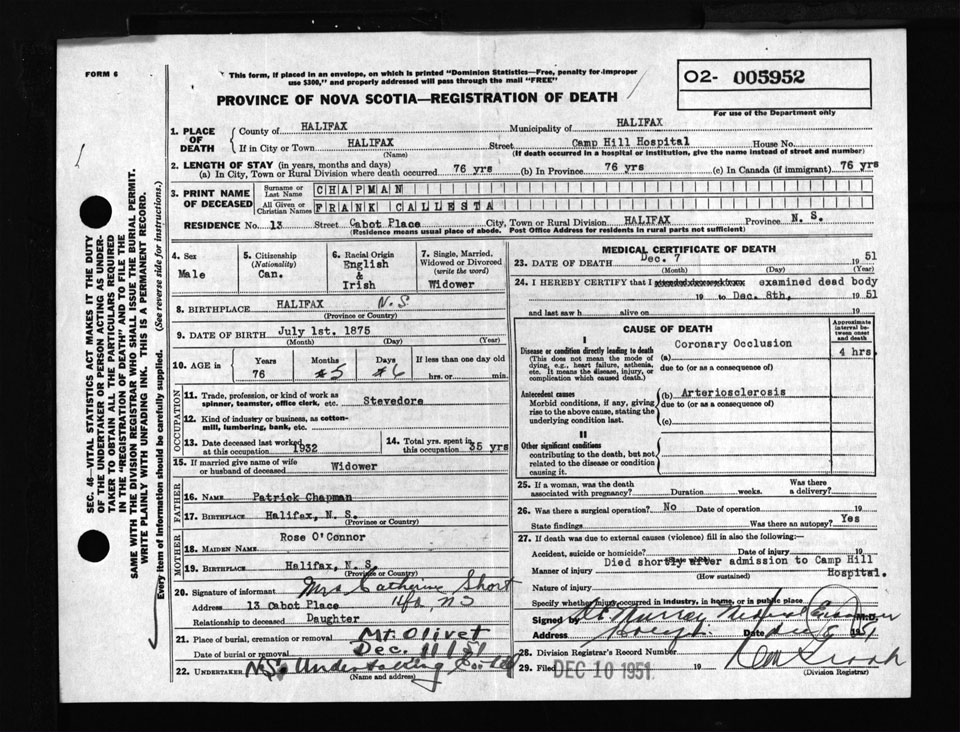 FORM 6
This form, if placed in an envelope, on which is printed "Dominion Statistics—Free, penalty for improper
use $300," and properly addressed will pass through the mail "FREE"
O2- 005952
For use of the Department only
PROVINCE OF NOVA SCOTIA—REGISTRATION OF DEATH
1. PLACE OF DEATH
County of HALIFAX Municipality of HALIFAX
If in City or Town HALIFAX Street Camp Hill Hospital House No.
(Name) (If death occurred in a hospital or institution, give the name instead of street and number)
2. LENGTH OF STAY (in years, months and days)
(a) In City, Town or Rural Division where death occurred 76 yrs (b) In Province 76 yrs (c) In Canada (if immigrant) 76 yrs
3. PRINT NAME OF DECEASED
Surname or Last Name CHAPMAN
All Given or Christian Names FRANK CALLESTA
RESIDENCE No. 13 Street Cabot Place City, Town or Rural Division HALIFAX Province N. S.
(Residence means usual place of abode. Post Office Address for residents in rural parts not sufficient)
SEC. 46—VITAL STATISTICS ACT MAKES IT THE DUTY
OF THE UNDERTAKER OR PERSON ACTING AS UNDER-
TAKER TO OBTAIN ALL THE PARTICULARS REQUIRED
IN THE "REGISTRATION OF DEATH" AND TO FILE THE
SAME WITH THE DIVISION REGISTRAR WHO SHALL ISSUE THE BURIAL PERMIT.
WRITE PLAINLY WITH UNFADING INK. THIS IS A PERMANENT RECORD.
Every item of information should be carefully supplied. (See reverse side for instructions.)
4. Sex Male
5. Citizenship (Nationality) Can.
6. Racial Origin English & Irish
7. Single, Married, Widowed or Divorced (write the word) Widower
8. BIRTHPLACE HALIFAX N.S
(Province or Country)
9. DATE OF BIRTH July 1st. 1875
(Month) (Day) (Year)
10. AGE in Years 76 Months 5 Days 6 If less than one day old hrs. or min.
OCCUPATION
11. Trade, profession, or kind of work as spinner, teamster, office clerk, etc. Stevedore
12. Kind of industry or business, as cotton-mill, lumbering, bank, etc.
13. Date deceased last worked at this occupation 1932
14. Total yrs. spent in this occupation 35 yrs
15. If married give name of wife or husband of deceased Widower
FATHER
16. NAME Patrick Chapman
17. BIRTHPLACE Halifax, N. S.
(Province or Country)
MOTHER
18. MAIDEN NAME Rose O'Connor
19. BIRTHPLACE Halifax, N. S.
(Province or Country)
20. Signature of informant Mrs Catherine Short
Address 13 Cabot Place Hfx, NS
Relationship to deceased Daughter
21. Place of burial, cremation or removal Mt. Olivet
Date of burial or removal Dec. 11/51
22. UNDERTAKER N.S. Undertaking Co. Ltd
(Name and address)
MEDICAL CERTIFICATE OF DEATH
23. DATE OF DEATH Dec. 7 1951
(Month) (Day) (Year)
24. I HEREBY CERTIFY that I examined dead body
19 to Dec. 8th, 1951
and last saw h alive on 19
CAUSE OF DEATH
Approximate interval between onset and death
I
Disease or condition directly leading to death (a) Coronary Occlusion 4 hrs.
(This does not mean the mode of dying, e.g., heart failure, asthenia, etc. It means the disease, injury, or complication which caused death.)
due to (or as a consequence of)
Antecedent causes (b) Arteriosclerosis
Morbid conditions, if any, giving rise to the above cause, stating the underlying condition last.
due to (or as a consequence of)
(c)
II
Other significant conditions
contributing to the death, but not related to the disease or condition causing it.
25. If a woman, was the death associated with pregnancy? Duration weeks. Was there a delivery?
26. Was there a surgical operation? No Date of operation 19
State findings Was there an autopsy? Yes
27. If death was due to external causes (violence) fill in also the following:—
Accident, suicide or homicide? Date of injury 19
Manner of injury Died shortly after admission to Camp Hill Hospital.
(How sustained)
Nature of injury
Specify whether injury occurred in industry, in home, or in public place
Signed by Murray Medical Examiner M.D.
Address Date Dec 8 1951
28. Division Registrar's Record Number
29. Filed DEC 10 1951
(Division Registrar)